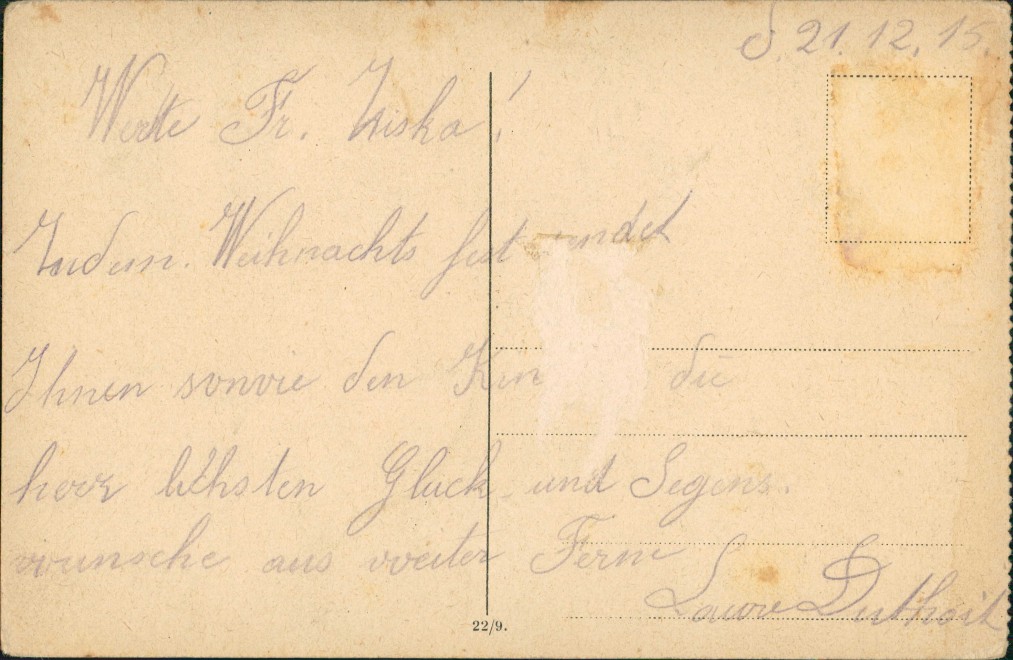 d. 21. 12. 15.
Werte Fr. Ziska!
Zudem. Weihnachts fest endet
Ihnen sowie den Kin die
herz lichsten Gluck und Segens.
wunsche aus weiter Ferne
Laure Duthoit
22/9.